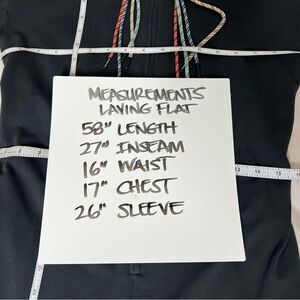 MEASUREMENTS
LAYING FLAT
58" LENGTH
27" INSEAM
16" WAIST
17" CHEST
26" SLEEVE